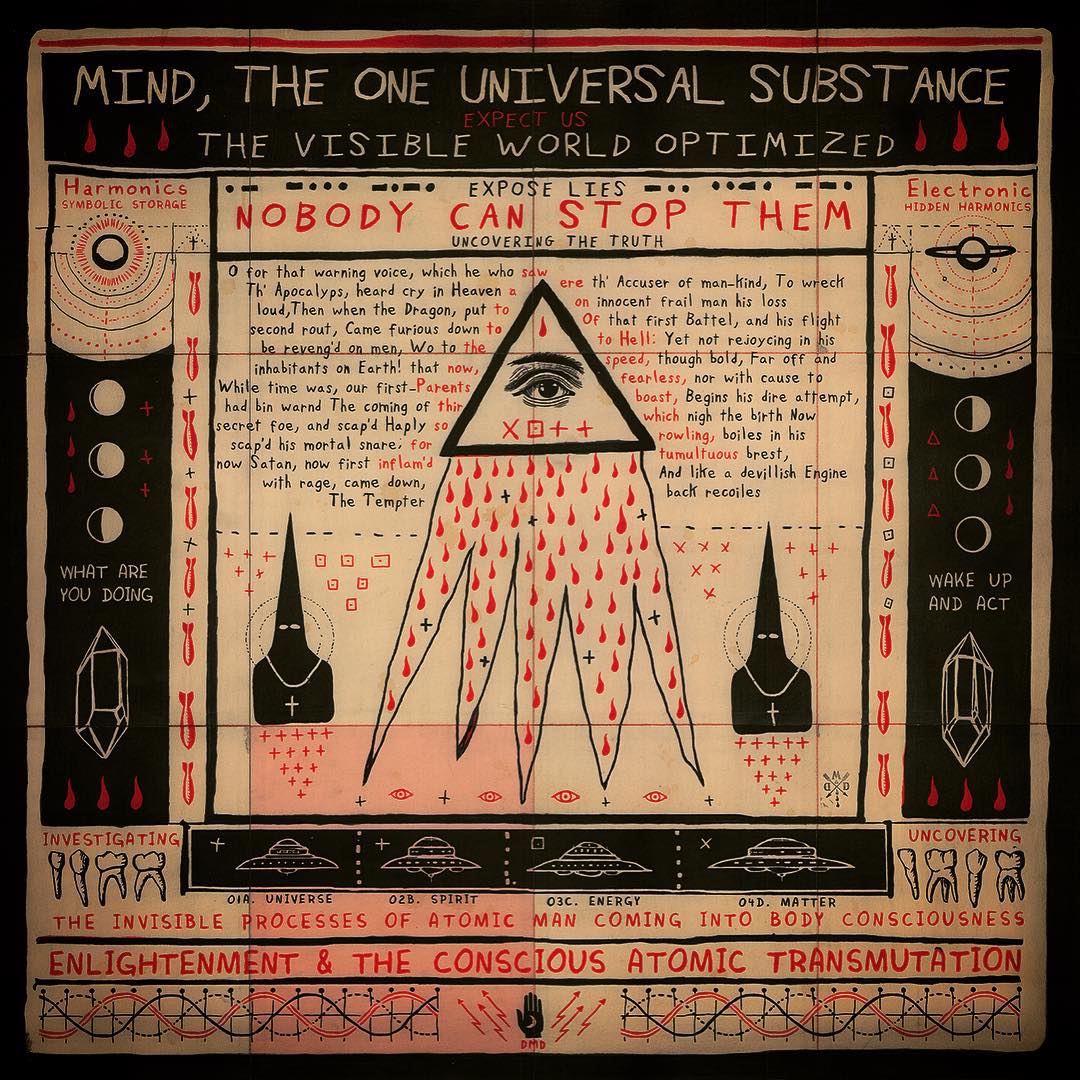 MIND, THE ONE UNIVERSAL SUBSTANCE
EXPECT US
THE VISIBLE WORLD OPTIMIZED
Harmonics
SYMBOLIC STORAGE
EXPOSE LIES
NOBODY CAN STOP THEM
UNCOVERING THE TRUTH
Electronic
HIDDEN HARMONICS
O for that warning voice, which he who saw
Th' Apocalyps, heard cry in Heaven a
loud,Then when the Dragon, put to
second rout, Came furious down to
be reveng'd on men, Wo to the
inhabitants on Earth! that now,
While time was, our first-Parents
had bin warnd The coming of thir
secret foe, and scap'd Haply so
scap'd his mortal snare; for
now Satan, now first inflam'd
with rage, came down,
The Tempter
ere th' Accuser of man-kind, To wreck
on innocent frail man his loss
Of that first Battel, and his flight
to Hell: Yet not rejoycing in his
speed, though bold, Far off and
fearless, nor with cause to
boast, Begins his dire attempt,
which nigh the birth Now
rowling, boiles in his
tumultuous brest,
And like a devillish Engine
back recoiles
WHAT ARE
YOU DOING
WAKE UP
AND ACT
M
D D
INVESTIGATING
UNCOVERING
01A. UNIVERSE
02B. SPIRIT
03C. ENERGY
04D. MATTER
THE INVISIBLE PROCESSES OF ATOMIC MAN COMING INTO BODY CONSCIOUSNESS
ENLIGHTENMENT & THE CONSCIOUS ATOMIC TRANSMUTATION
DMD